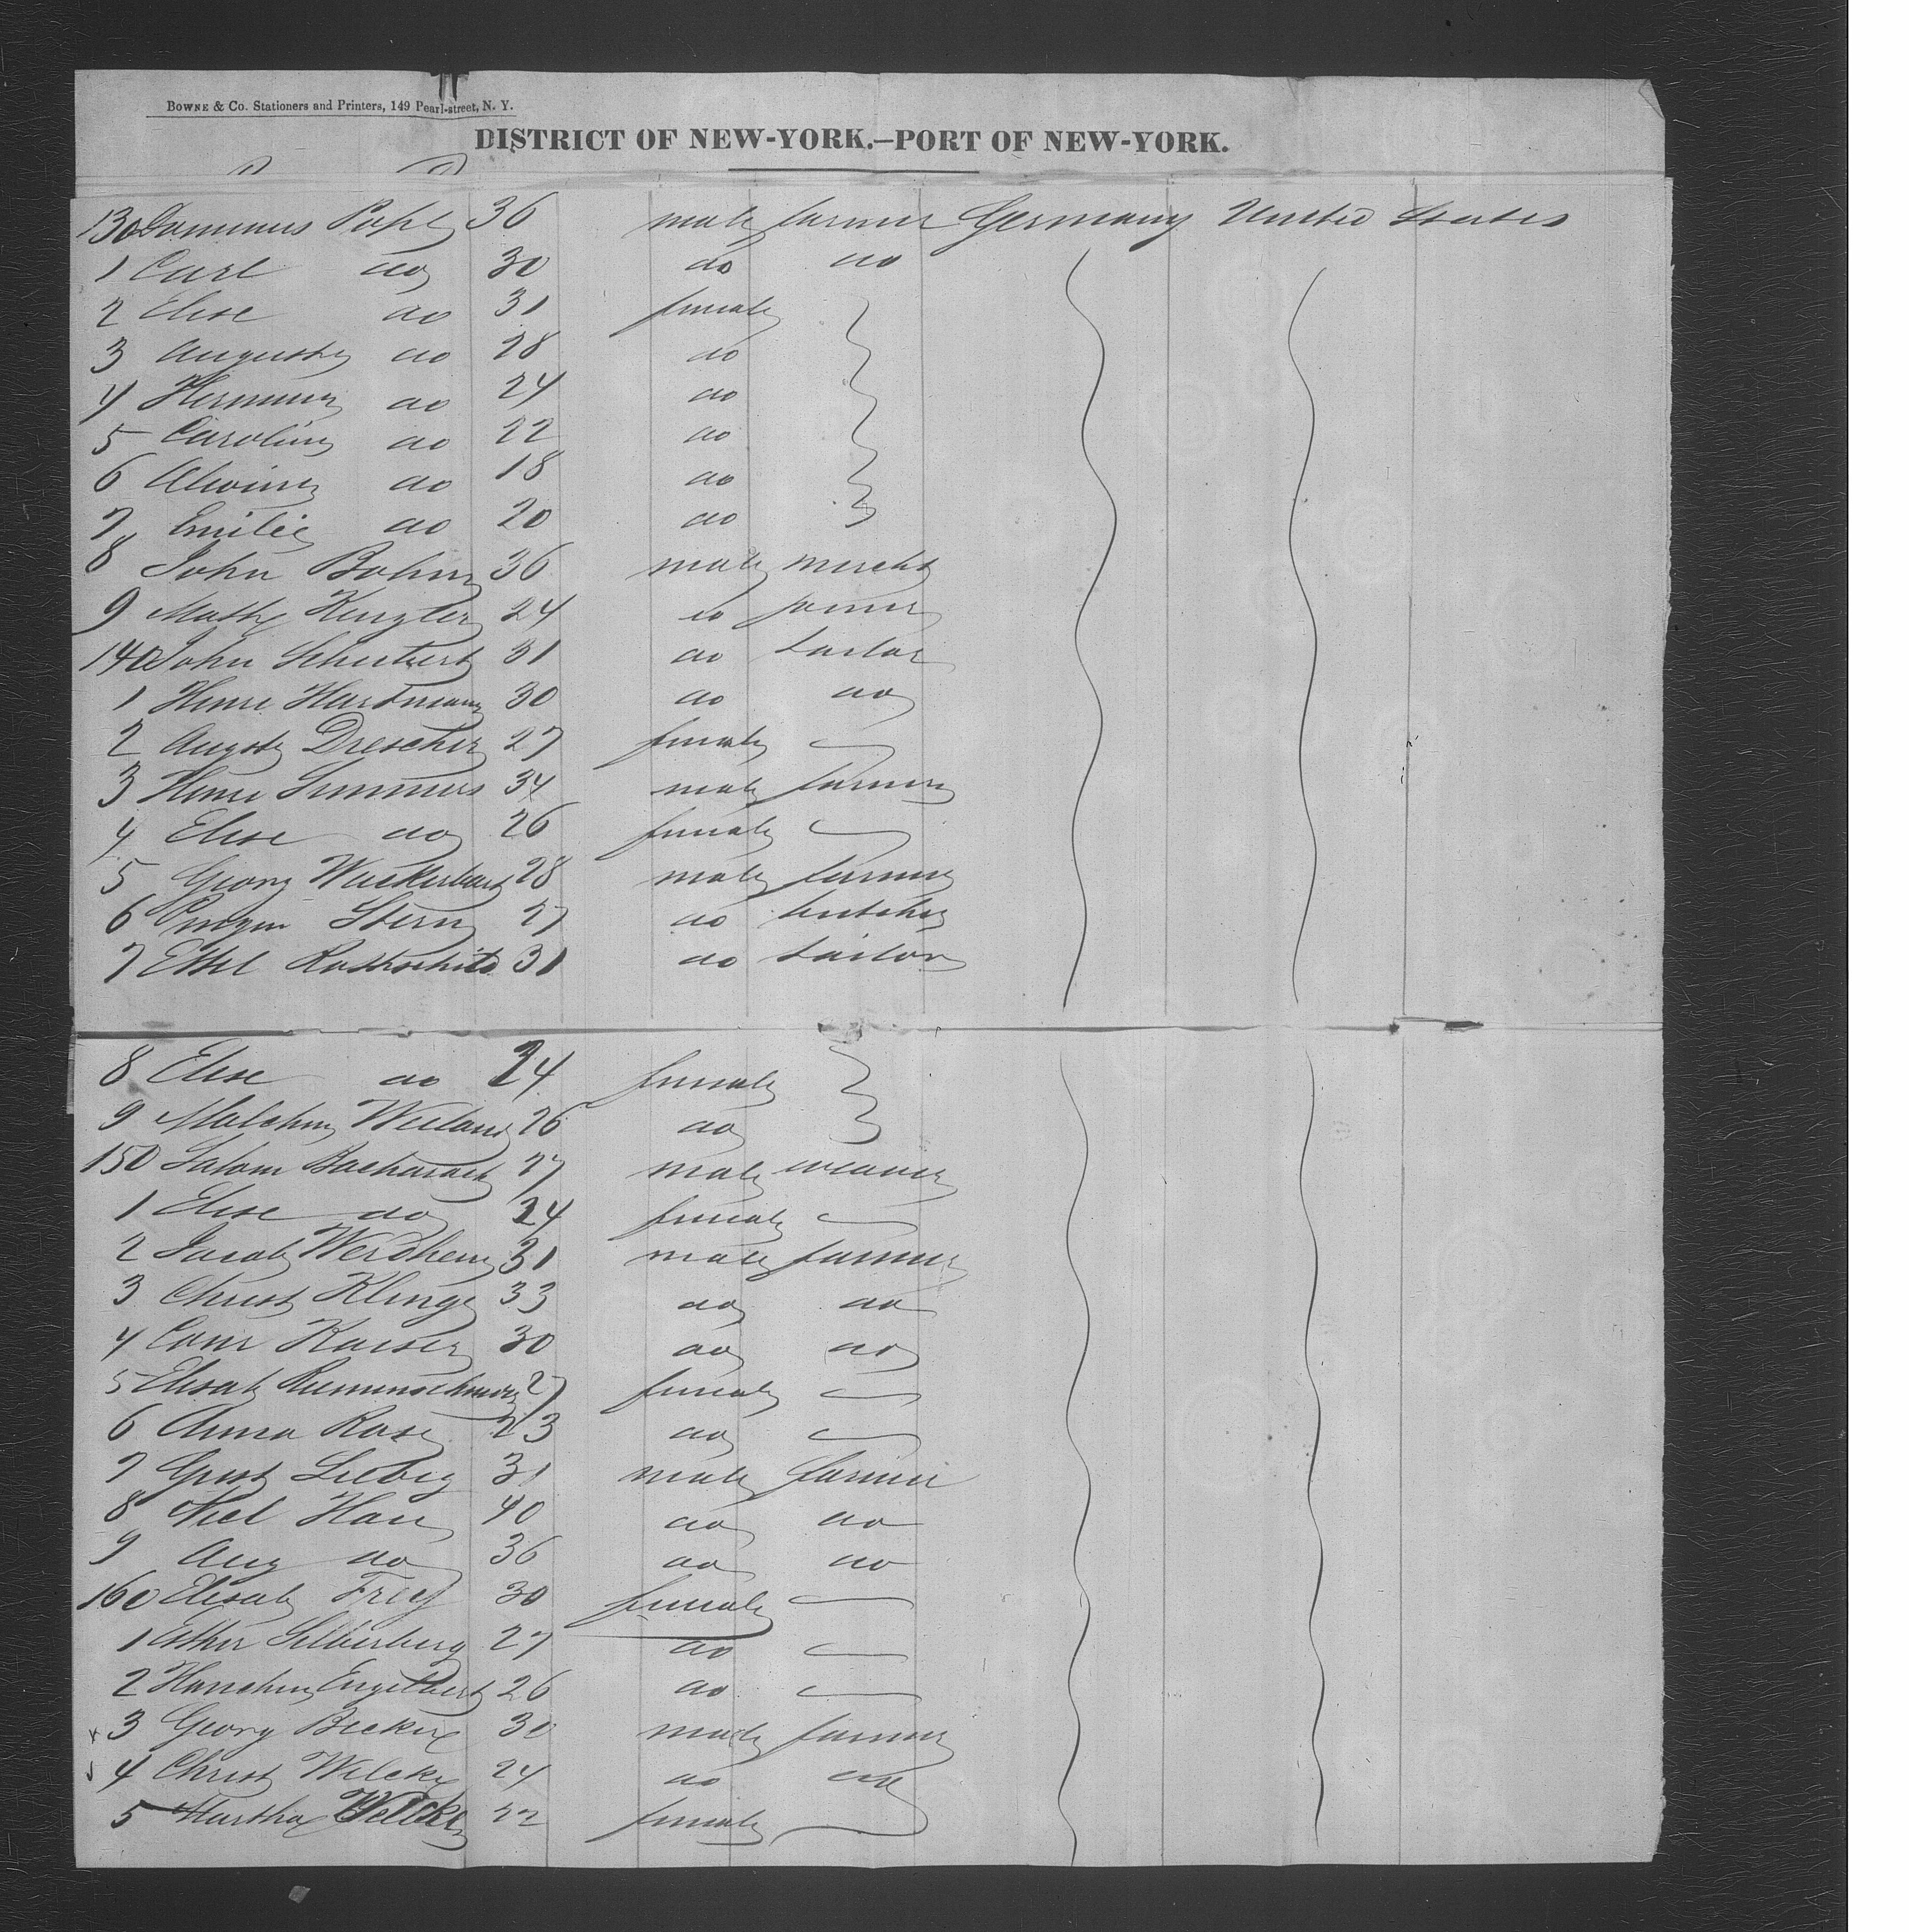 BOWNE & CO. Stationers and Printers, 149 Pearl-street, N. Y.
DISTRICT OF NEW-YORK.—PORT OF NEW-YORK.
130 Pape 36 male farmer Germany United States
1 Carl do 30 do do
2 Elise do 31 female
3 Auguste do 28 do
4 Hermine do 24 do
5 Caroline do 22 do
6 Alwine do 18 do
7 Emilie do 20 do
8 John Bohm 36 male mercht
9 Math 24 do
140 John Schubert 31 do tailor
1 Henri Hartmann 30 do do
2 August Drescher 27 female
3 Henri 34 male farmer
4 Elise do 26 female
5 Georg Wackerbart 28 male farmer
6 Stern 27 do butcher
7 Ettel Rothschild 31 do tailor
8 Elise do 24 female
9 Malchen Wieland 26 do
150 Salom Bacharach 27 male weaver
1 Elise do 24 female
2 Jacob Werdheim 31 male farmer
3 Christ Klinge 33 do do
4 Kaiser 30 do do
5 Elisab 27 female
6 Anna Rose 23 do
7 Gust Liebig 31 male farmer
8 40 do do
9 Aug do 36 do do
160 Elisab Frey 30 female
1 Esther Silberberg 27 do
2 Hanchen Engelbert 26 do
3 Georg Becker 30 male farmer
4 Christ Welcke 24 do do
5 Martha Welcke 22 female